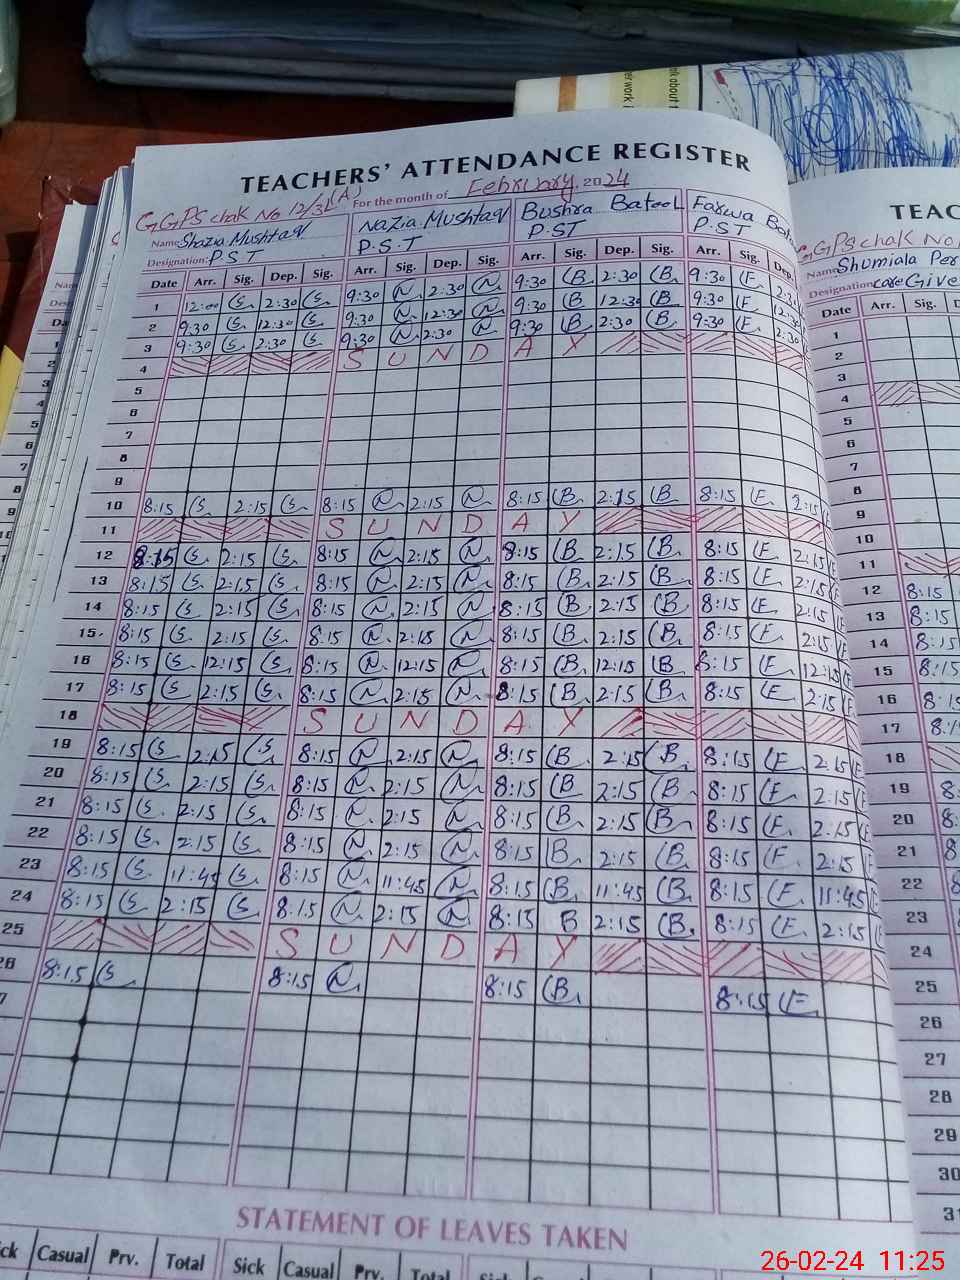 TEACHERS' ATTENDANCE REGISTER
GGPS chak No 12/3L (A) For the month of February, 2024
Name Shazia Mushtaq Nazia Mushtaq Bushra Batool Farwa
Designation: P.S.T P.S.T P.ST P.ST
Date Arr. Sig. Dep. Sig. Arr. Sig. Dep. Sig. Arr. Sig. Dep. Sig. Arr. Sig. Dep.
1 12:00 S 2:30 S 9:30 N 2:30 N 9:30 B 2:30 B 9:30 F 2:30
2 9:30 S 12:30 S 9:30 N 12:30 N 9:30 B 12:30 B 9:30 F 12:30
3 9:30 S 2:30 S 9:30 N 2:30 N 9:30 B 2:30 B 9:30 F 2:30
4 SUNDAY
5
6
7
8
9
10 8:15 S 2:15 S 8:15 N 2:15 N 8:15 B 2:15 B 8:15 F 2:15
11 SUNDAY
12 8:15 S 2:15 S 8:15 N 2:15 N 8:15 B 2:15 B 8:15 F 2:15 F
13 8:15 S 2:15 S 8:15 N 2:15 N 8:15 B 2:15 B 8:15 F 2:15 F
14 8:15 S 2:15 S 8:15 N 2:15 N 8:15 B 2:15 B 8:15 F 2:15 F
15 8:15 S 2:15 S 8:15 N 2:15 N 8:15 B 2:15 B 8:15 F 2:15 F
16 8:15 S 12:15 S 8:15 N 12:15 N 8:15 B 12:15 B 8:15 F 12:15 F
17 8:15 S 2:15 S 8:15 N 2:15 N 8:15 B 2:15 B 8:15 F 2:15 F
18 SUNDAY
19 8:15 S 2:15 S 8:15 N 2:15 N 8:15 B 2:15 B 8:15 F 2:15 F
20 8:15 S 2:15 S 8:15 N 2:15 N 8:15 B 2:15 B 8:15 F 2:15 F
21 8:15 S 2:15 S 8:15 N 2:15 N 8:15 B 2:15 B 8:15 F 2:15 F
22 8:15 S 2:15 S 8:15 N 2:15 N 8:15 B 2:15 B 8:15 F 2:15
23 8:15 S 11:45 S 8:15 N 11:45 N 8:15 B 11:45 B 8:15 F 11:45
24 8:15 S 2:15 S 8:15 N 2:15 N 8:15 B 2:15 B 8:15 F 2:15
25 SUNDAY
26 8:15 S 8:15 N 8:15 B 8:15 F
STATEMENT OF LEAVES TAKEN
Casual Prv. Total Sick Casual Prv. Total
GGPS chak No
Name Shumiala
Designation care Give
Date Arr. Sig. Dep.
1
2
3
4
5
6
7
8
9
10
11
12 8:15
13 8:15
14 8:15
15 8:15
16
17
18
19
20
21
22
23
24
25
26
27
28
29
30
31
26-02-24 11:25